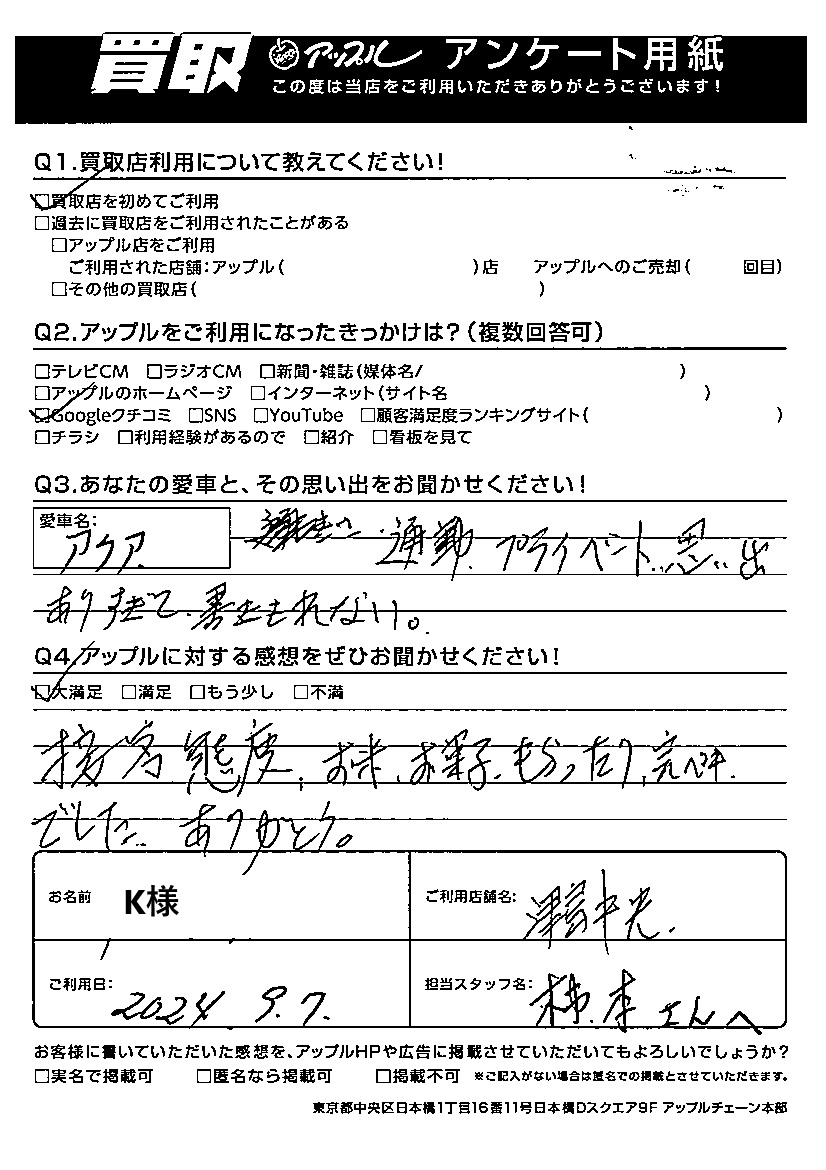 買取 アップル アンケート用紙
この度は当店をご利用いただきありがとうございます!
Q1.買取店利用について教えてください!
☑買取店を初めてご利用
□過去に買取店をご利用されたことがある
□アップル店をご利用
ご利用された店舗:アップル( )店 アップルへのご売却( 回目)
□その他の買取店( )
Q2.アップルをご利用になったきっかけは?(複数回答可)
□テレビCM □ラジオCM □新聞・雑誌(媒体名/ )
□アップルのホームページ □インターネット(サイト名 )
☑Googleクチコミ □SNS □YouTube □顧客満足度ランキングサイト( )
□チラシ □利用経験があるので □紹介 □看板を見て
Q3.あなたの愛車と、その思い出をお聞かせください!
愛車名:
アクア 通勤、プライベント、思い出
ありすぎて、書ききれない。
Q4.アップルに対する感想をぜひお聞かせください!
☑大満足 □満足 □もう少し □不満
接客態度、お米、お菓子、もらったり、完ペキ
でした。ありがとう。
お名前 K様 ご利用店舗名: 津島中央
ご利用日: 2024 9.7. 担当スタッフ名: 柿本さんへ
お客様に書いていただいた感想を、アップルHPや広告に掲載させていただいてもよろしいでしょうか?
□実名で掲載可 □匿名なら掲載可 □掲載不可 ※ご記入がない場合は匿名での掲載とさせていただきます。
東京都中央区日本橋1丁目16番11号日本橋Dスクエア9F アップルチェーン本部